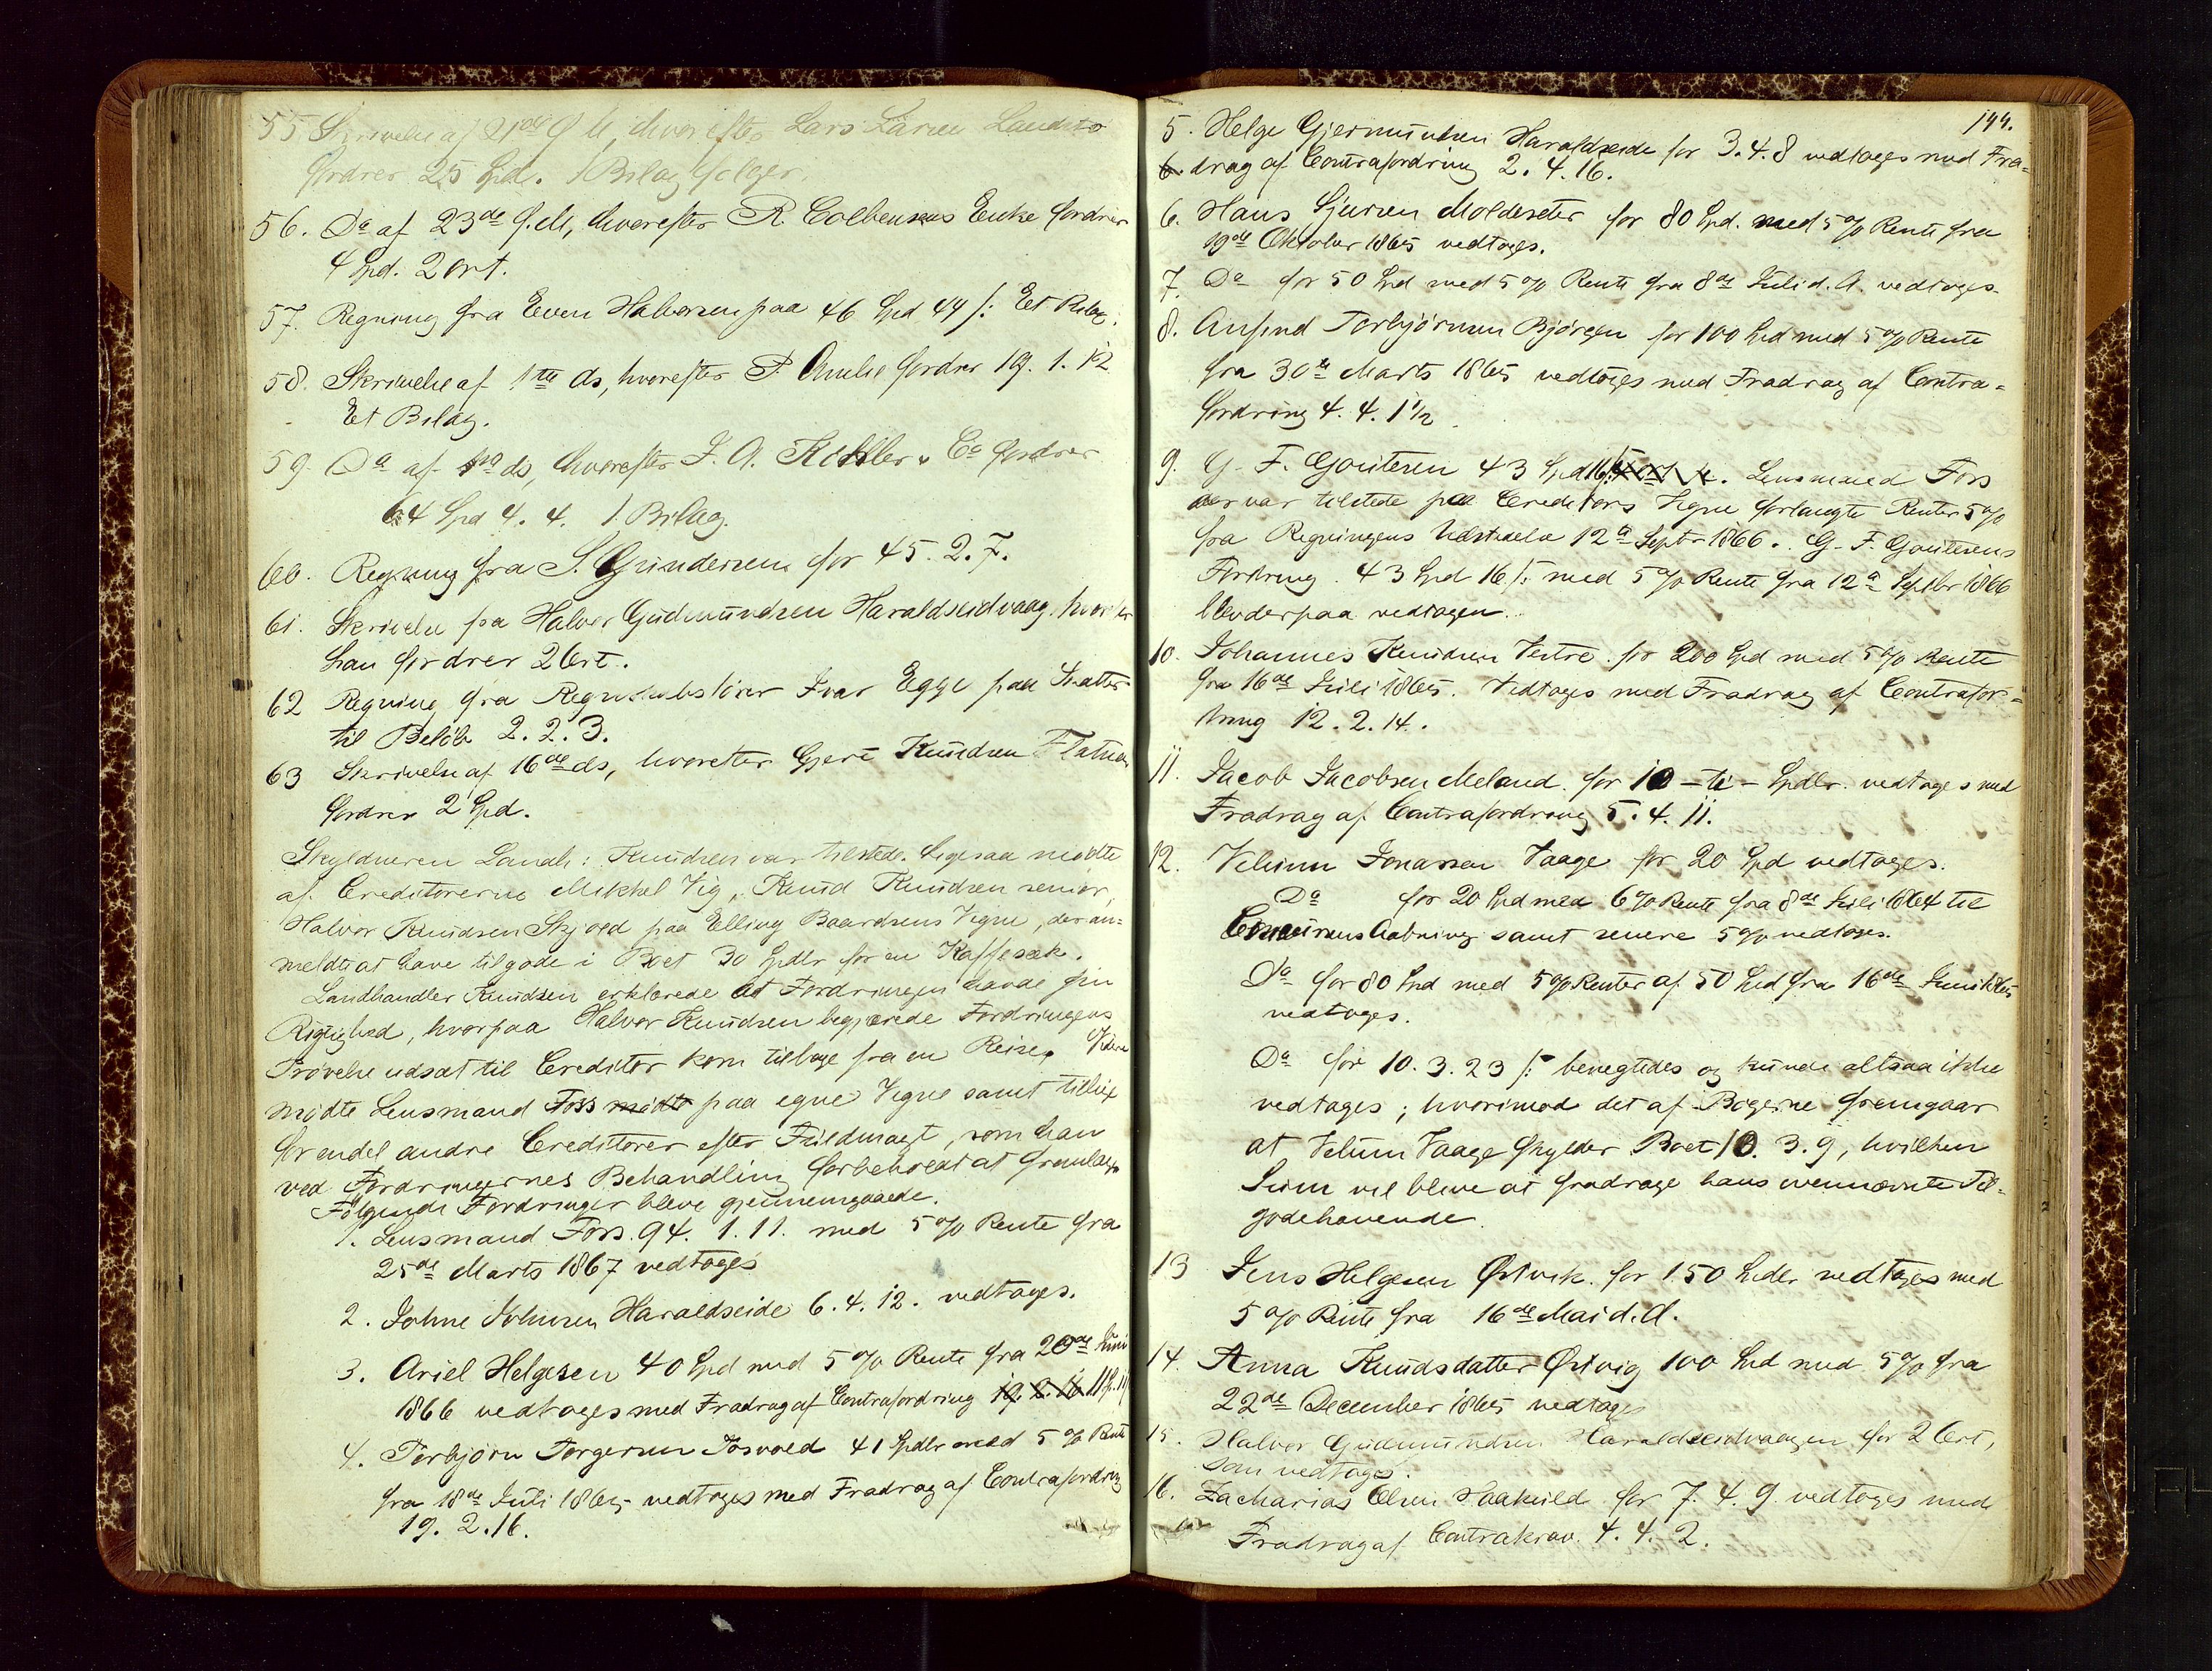 55 Skrivelse af 21de f. M., hvorefter Lars Larsen
fordrer 25 Spd. 1 Bilag følger.
56. Do af 23de f. M, hvorefter R. Colbensens Enke fordrer
4 Spd. 2 ort.
57. Regning fra Even Halvorsen paa 46 Spd 44 /: Et Bilag.
58. Skrivelse af 1ste ds, hvorefter P. fordrer 19. 1. 12
Et Bilag.
59. Da af ds, hvorefter J. A. Køhler & Co fordrer
64 Spd 4. 4. 1 Bilag.
60. Regning fra S. Gundersen for 45. 2. 7.
61. Skrivelse fra Halvor Gudmundsen Haraldseidvaag, hvorefter
han fordrer 2 Ort.
62 Regning fra Regnskabsfører Ivar Egge paa Skatter
til Beløb 2. 2. 3.
63 Skrivelse af 16de ds, hvorefter Gjert Knudsen
fordrer 2 Spd.
Skyldneren Landh: Knudsen var tilstede. Ligesaa mødte
af Creditorerne Mikkel Vig, Knud Knudsen senior,
Halvor Knudsen Skjold paa Elling Baardsens Vegne, der an=
meldte at have tilgode i Boet 30 Spdlr for en Kaffesæk.
Landhandler Knudsen erklærede at Fordringen havde sin
Rigtighed, hvorpaa Halvor Knudsen begjærede Fordringens
Prøvelse udsat til Creditor kom tilbage fra en Reise. Videre
mødte Lensmand Foss mødte paa egne Vegne samt tillige
for endel andre Creditorer efter Fuldmagt, som han
ved Fordringernes Behandling forbeholdt at fremlægge
Følgende Fordringer bleve gjennemgaaede.
1. Lensmand Foss. 94. 1. 11. med 5 % Rente fra
25de Marts 1867 vedtages
2. Johne Johnsen Haraldseide 6. 4. 12. vedtages.
3. Ariel Helgesen 40 Spd med 5 % Rente fra 20de Juni
1866 vedtages med Fradrag af Contrafordring 19. 2. 16
4. Torbjørn Torgersen 41 Spdlr med 5 % Rente
fra 18de Juli 1865 vedtages med Fradrag af Contrafordring
19. 2. 16.
144.
5. Helge Gjermundsen Haraldseide for 3. 4. 8 vedtages med Fra=
6. drag af Contrafordring 2. 4. 16.
6. Hans Sjursen Moldeseter for 80 Spd. med 5 % Rente fra
19de Oktober 1865 vedtages.
7. Da for 50 Spd med 5 % Rente fra 8de Juli d. A. vedtages.
8. Torbjørnsen for 100 Spd med 5 % Rente
fra 30te Marts 1865 vedtages med Fradrag af Contra=
fordring 4. 4. 1 1/2
9. G. F. Goutesen 43 Spd 16 /: Lensmand Foss
der var tilstede paa Creditors Vegne forlangte Renter 5 %
fra Regningens Udstedelse 12te Septbr 1866. G. F. Goutesens
Fordring 43 Spd 16 /: med 5 % Rente fra 12te Septbr 1866
blev derpaa vedtagen.
10. Johannes Knudsen Vestre for 200 Spd med 5 % Rente
fra 16de Juli 1865. Vedtages med Fradrag af Contrafor=
dring 12. 2. 14.
11. Jacob Jacobsen Meland for 10 - ti - Spdlr. vedtages med
Fradrag af Contrafordring 5. 4. 11.
12. Velum Jonassen Vaage for 20 Spd vedtages.
Da for 20 Spd med 6 % Rente fra 8de Juli 1864 til
Concursens Aabning samt senere 5 % vedtages.
Da for 80 Spd med 5 % Renter af 50 Spd fra 16de Juni 1865
vedtages.
Da for 10. 3. 23 /: benegtedes og kunde altsaa ikke
vedtages; hvorimod det af Bøgerne fremgaar
at Velum Vaage skylder Boet 10. 3. 9, hvilken
Sum vil blive at fradrage hans ovennævnte Til=
godehavende.
13 Jens Helgesen Østvik for 150 Spdlr vedtages med
5 % Rente fra 16de Mai d. A.
14. Anna Knudsdatter Østvig 100 Spd med 5 % fra
22de December 1865 vedtages
15. Halvor Gudmundsen Haraldseidvaagen for 2 Ort,
som vedtages.
16. Zacharias Olsen for 7. 4. 9 vedtages med
Fradrag af Contrakrav. 4. 4. 2.